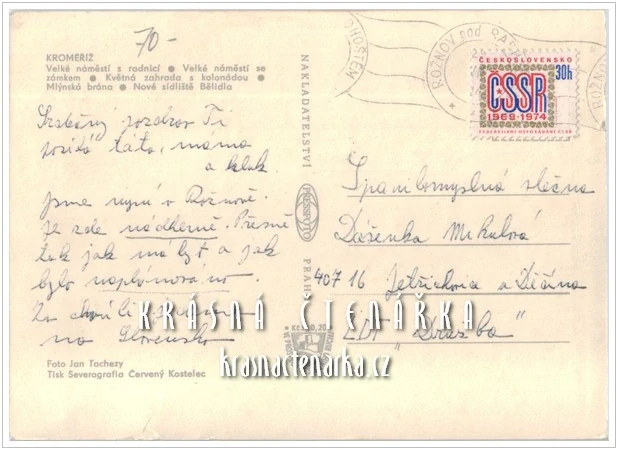 70-
KROMĚŘÍŽ
Velké náměstí s radnicí ● Velké náměstí se
zámkem ● Květná zahrada s kolonádou ●
Mlýnská brána ● Nové sídliště Bělidla
Srdečný pozdrav Ti
posílá táta, máma
a kluk.
Jsme nyní v Rožnově.
Je zde nádherně. Přesně
tak jak má být a jak
bylo naplánováno.
Za chvíli
na Slovensko
Foto Jan Tachezy
Tisk Severografia Červený Kostelec
NAKLADATELSTVÍ
PRESSFOTO
PRAHA
Kčs 0,20
ROŽNOV pod RAD
HOŠTĚM
ROŽNOV
ČESKOSLOVENSKO
30h
ČSSR
1969-1974
FEDERATIVNÍ USPOŘÁDÁNÍ ČSSR
slečna
Dášenka Mikulová
407 16 Jetřichovice u Děčína
"Družba"
KRÁSNÁ ČTENÁŘKA
krasnactenarka.cz